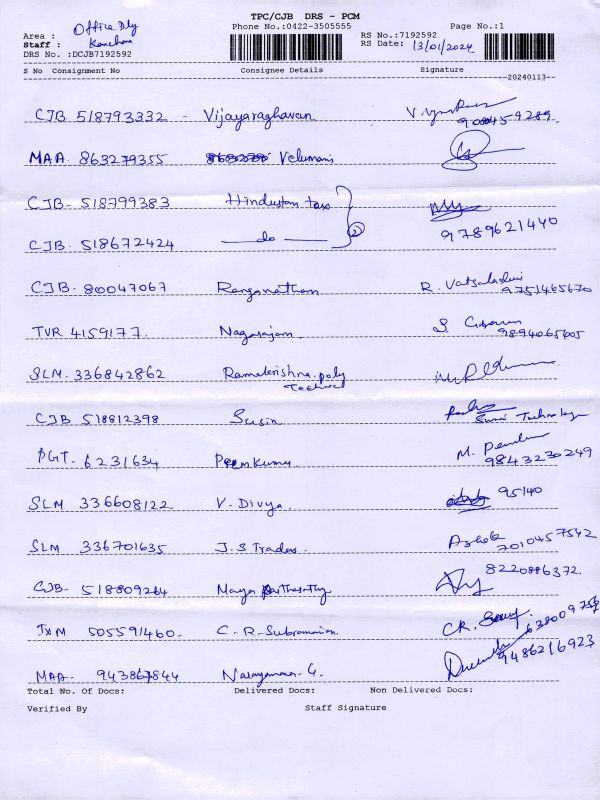 TPC/CJB DRS - PCM
Phone No.:0422-3505555 Page No.:1
Area : Office Dly
Staff : Kanchana
RS No.:7192592
RS Date: 13/01/2024
DRS No. :DCJB7192592
S No Consignment No Consignee Details Signature
20240113
CJB 518793332 - Vijayaraghavan
MAA 863279355 Velumani
CJB- 518799383 Hindustan tax
CJB- 518672424 do 9789621440
CJB- 80047067 Ranganathan R. Vatsaladevi
9751465670
TVR 4159177. Nagarajan S
9894065605
SLM. 336842862 Ramakrishna poly
Technic
CJB 518812398 Susin
PGT. 6231634 Premkumar M.
9843230249
SLM 336608122 V. Divya 95140
SLM 336701635 J.S Traders Ashok
7010457542
CJB- 518809264 Maya Parthasarathy 8220886372
JXM 505591460- C. R. Subramanian CR.
MAA- 943867844 Narayanan G. 9486216923
Total No. Of Docs: Delivered Docs: Non Delivered Docs:
Verified By Staff Signature